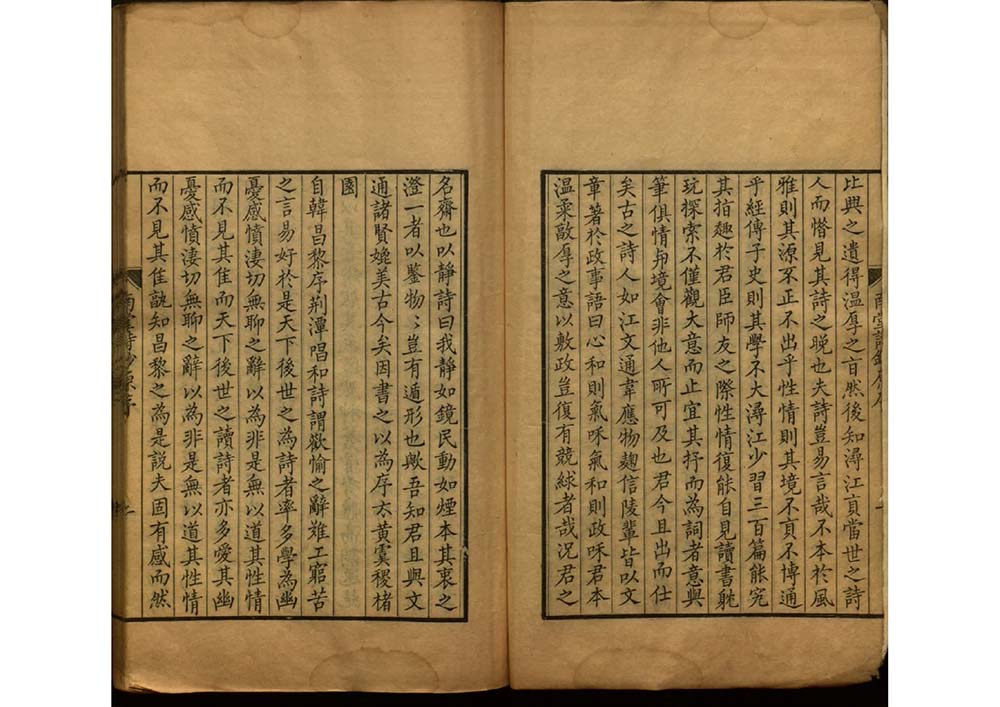 比興之遺得溫厚之旨然後知潯江眞當世之詩
人而惜見其詩之晚也夫詩豈易言哉不本於風
雅則其源不正不出乎性情則其境不眞不博通
乎經傳子史則其學不大潯江少習三百篇能究
其指趣於君臣師友之際性情復能自見讀書躭
玩探索不僅觀大意而止宜其抒而為詞者意與
筆俱情與境會非他人所可及也君今且出而仕
矣古之詩人如江文通韋應物麹信陵輩皆以文
章著於政事語曰心和則氣咊氣和則政咊君本
溫柔敦厚之意以敷政豈復有競絿者哉況君之
名齋也以靜詩曰我靜如鏡民動如煙本其衷之
澄一者以鑒物〻豈有遁形也歟吾知君且與文
通諸賢媲美古今矣因書之以為序太黃雲稷楮
園
自韓昌黎序荊潭唱和詩謂歡愉之辭難工窮苦
之言易好於是天下後世之為詩者率多學為幽
憂感憤淒切無聊之辭以為非是無以道其性情
而不見其隹而天下後世之讀詩者亦多愛其幽
憂感憤淒切無聊之辭以為非是無以道其性情
而不見其隹詎知昌黎之為是說夫固有感而然